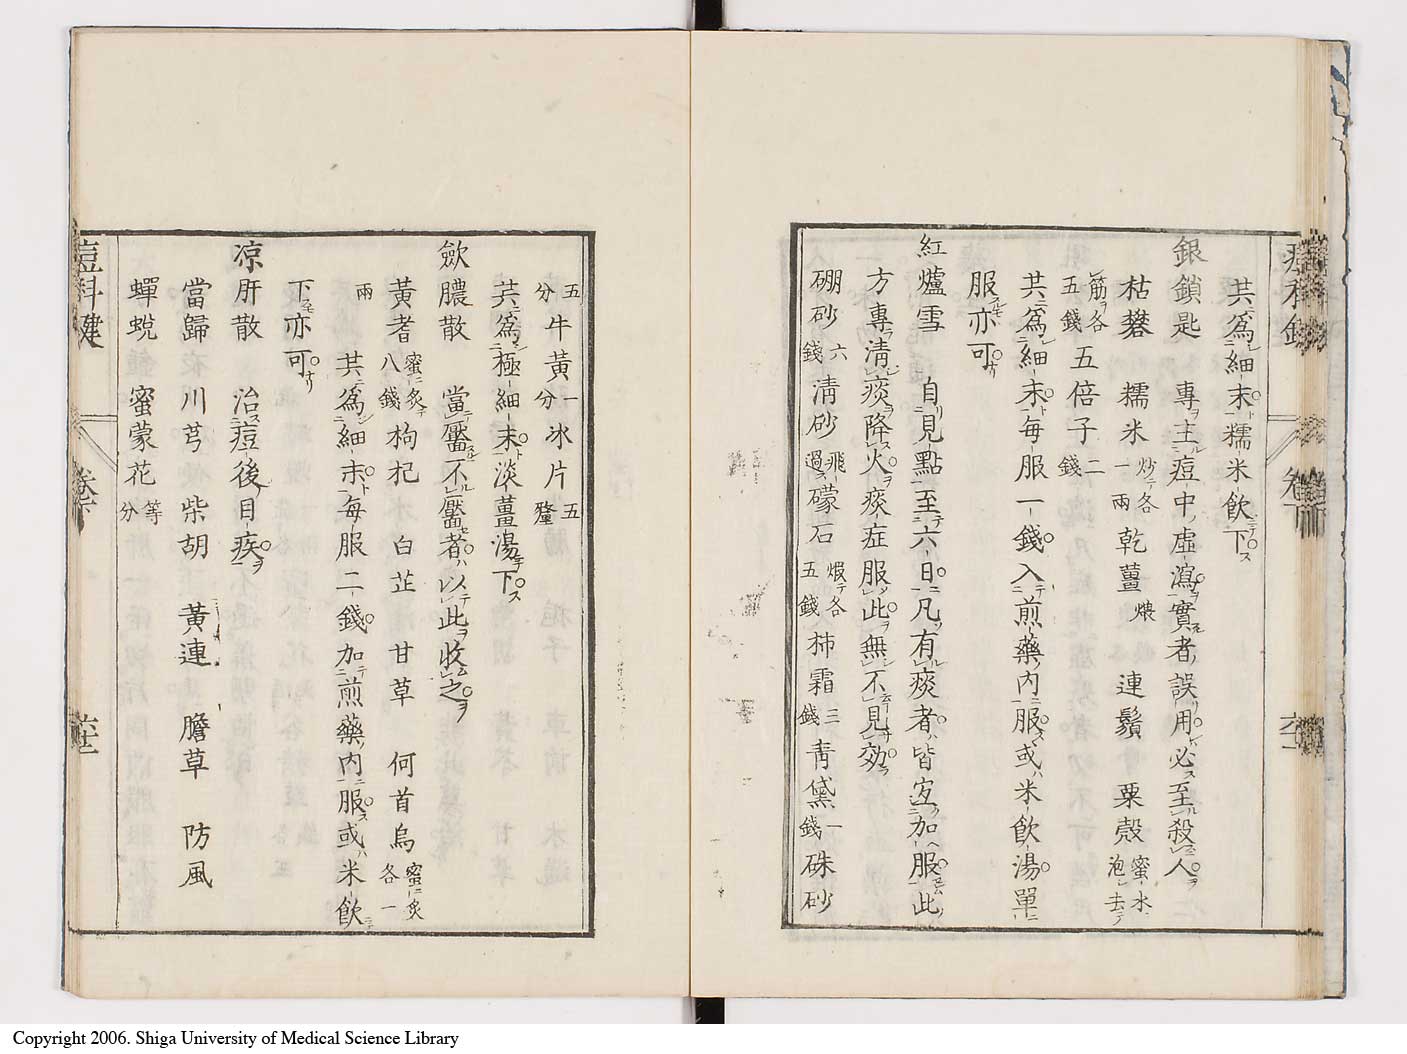 共爲細末糯米飲下
銀鎖匙　專主痘中虛瀉實者誤用必至殺人
枯礬　糯米炒各一兩乾薑煨連鬚粟殼蜜水泡去
筋各五錢五倍子二錢
共爲細末每服一錢入煎藥內服或米飲湯單
服亦可
紅爐雪　自見點至六日凡有痰者皆宜加服此
方專淸痰降火痰症服此無不見効
硼砂六錢淸砂飛過礞石煅各五錢柿霜三錢靑黛一錢硃砂
卷下
五分牛黃一分冰片五釐
共爲極細末淡薑湯下
斂膿散　當靨不靨者以此收之
黃耆蜜炙八錢枸杞　白芷　甘草　何首烏蜜炙各一
兩　共爲細末每服二錢加煎藥內服或米飲
下亦可
凉肝散　治痘後目疾
當歸　川芎　柴胡　黃連　膽草　防風
蟬蛻　蜜蒙花等分
痘科鍵
卷下
Copyright 2006. Shiga University of Medical Science Library